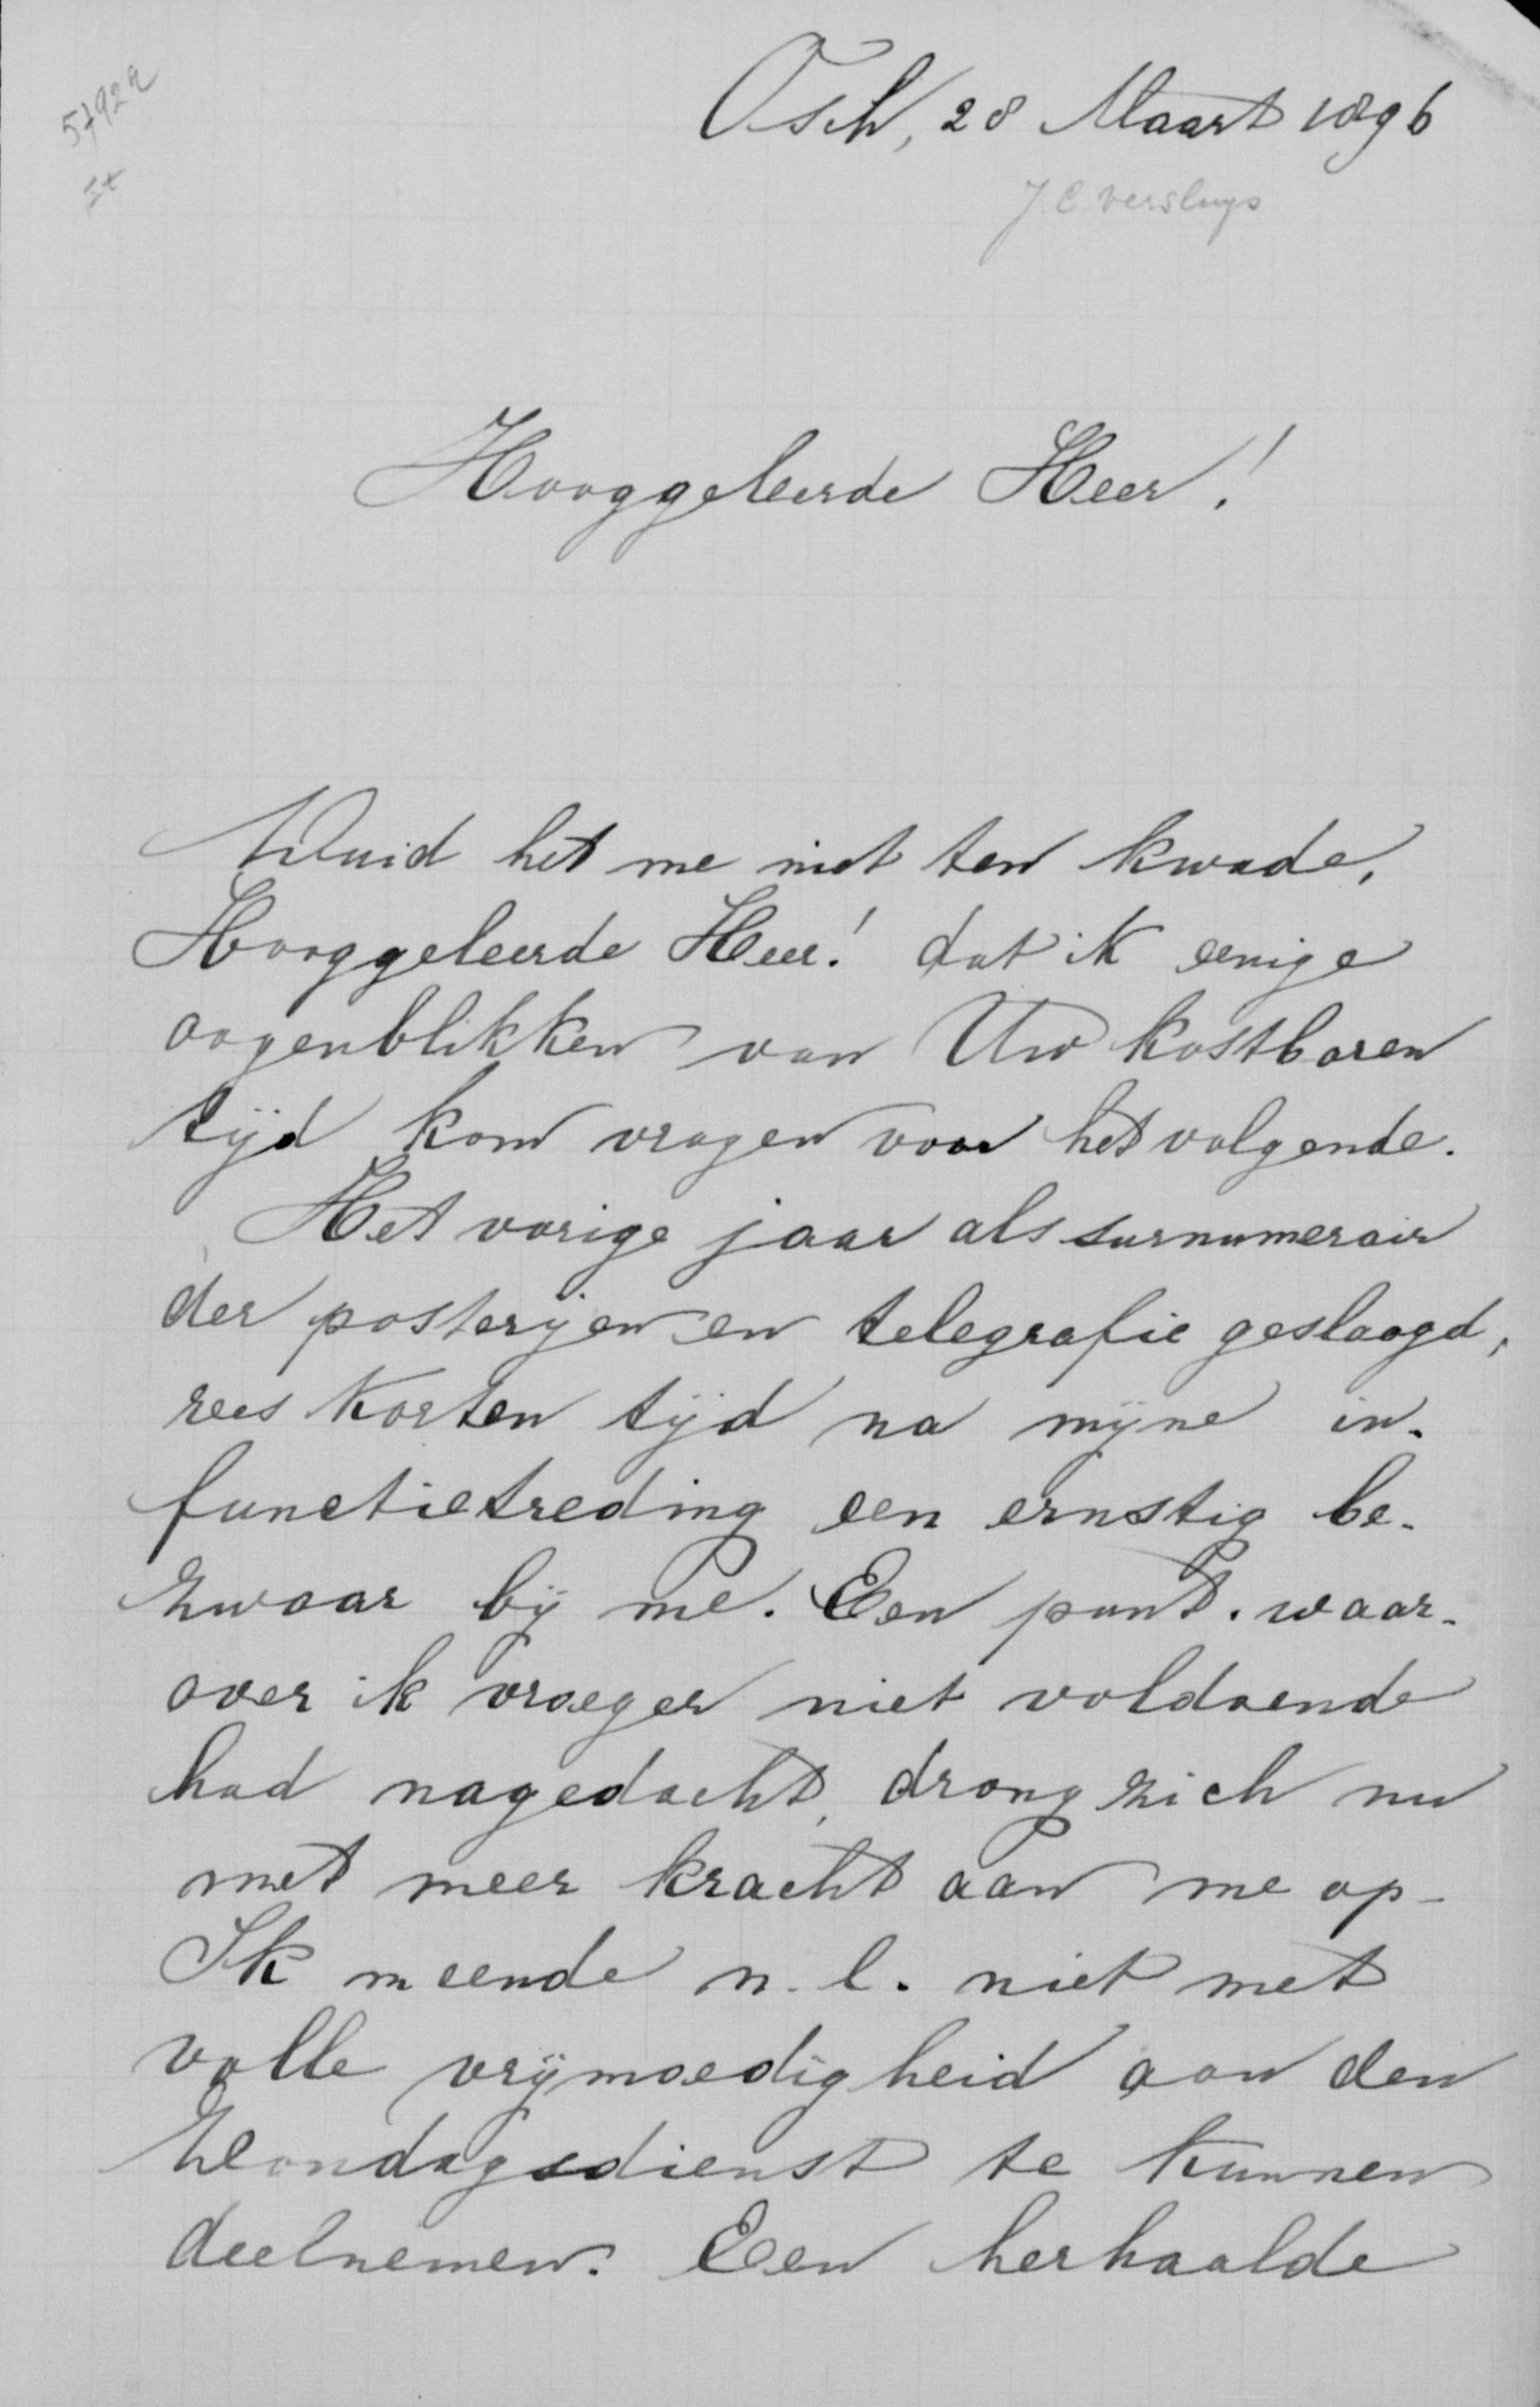 5792a
Osch, 28 Maart 1896
J. C. Versluys
Hooggeleerde Heer!
Duid het me niet ten kwade,
Hooggeleerde Heer! dat ik eenige
oogenblikken van Uw kostbaren
tijd kom vragen voor het volgende.
Het vorige jaar als surnumerair
der posterijen en telegrafie geslaagd,
rees korten tijd na mijne in-
functietreding een ernstig be-
zwaar bij me. Een punt. waar-
over ik vroeger niet voldoende
had nagedacht, drong zich nu
met meer kracht aan me op-
Ik meende n. l. niet met
volle vrijmoedigheid aan den
Zondagsdienst te kunnen
deelnemen. Een herhaalde